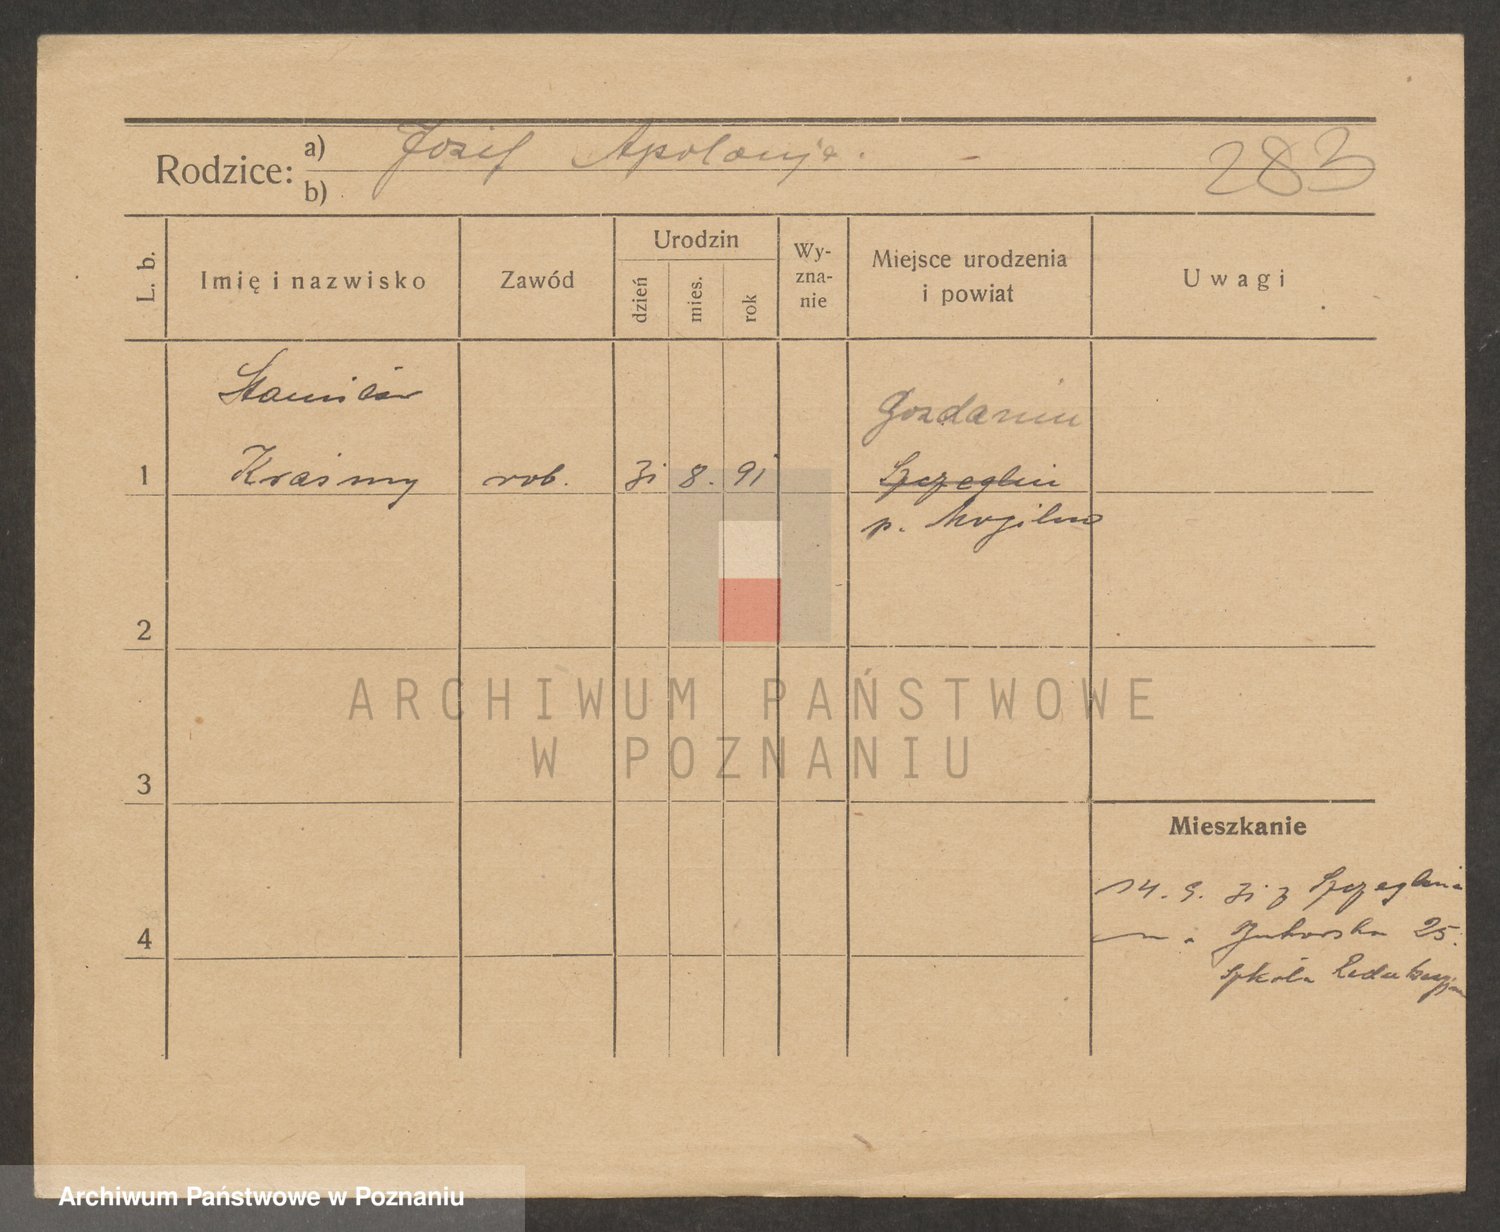 Rodzice:
a) Józef Apolonja.
b)
283
L. b.
Imię i nazwisko
Zawód
Urodzin
dzień
mies.
rok
Wy-
zna-
nie
Miejsce urodzenia
i powiat
Uwagi
Stanisław
Gozdanin
1 Kraśny rob. 31 8. 91 Szczeglin
p. Mogilno
2
ARCHIWUM PAŃSTWOWE
W POZNANIU
3
Mieszkanie
14. 9. 31 z Szczeglina
4
25.
Szkoła
Archiwum Państwowe w Poznaniu